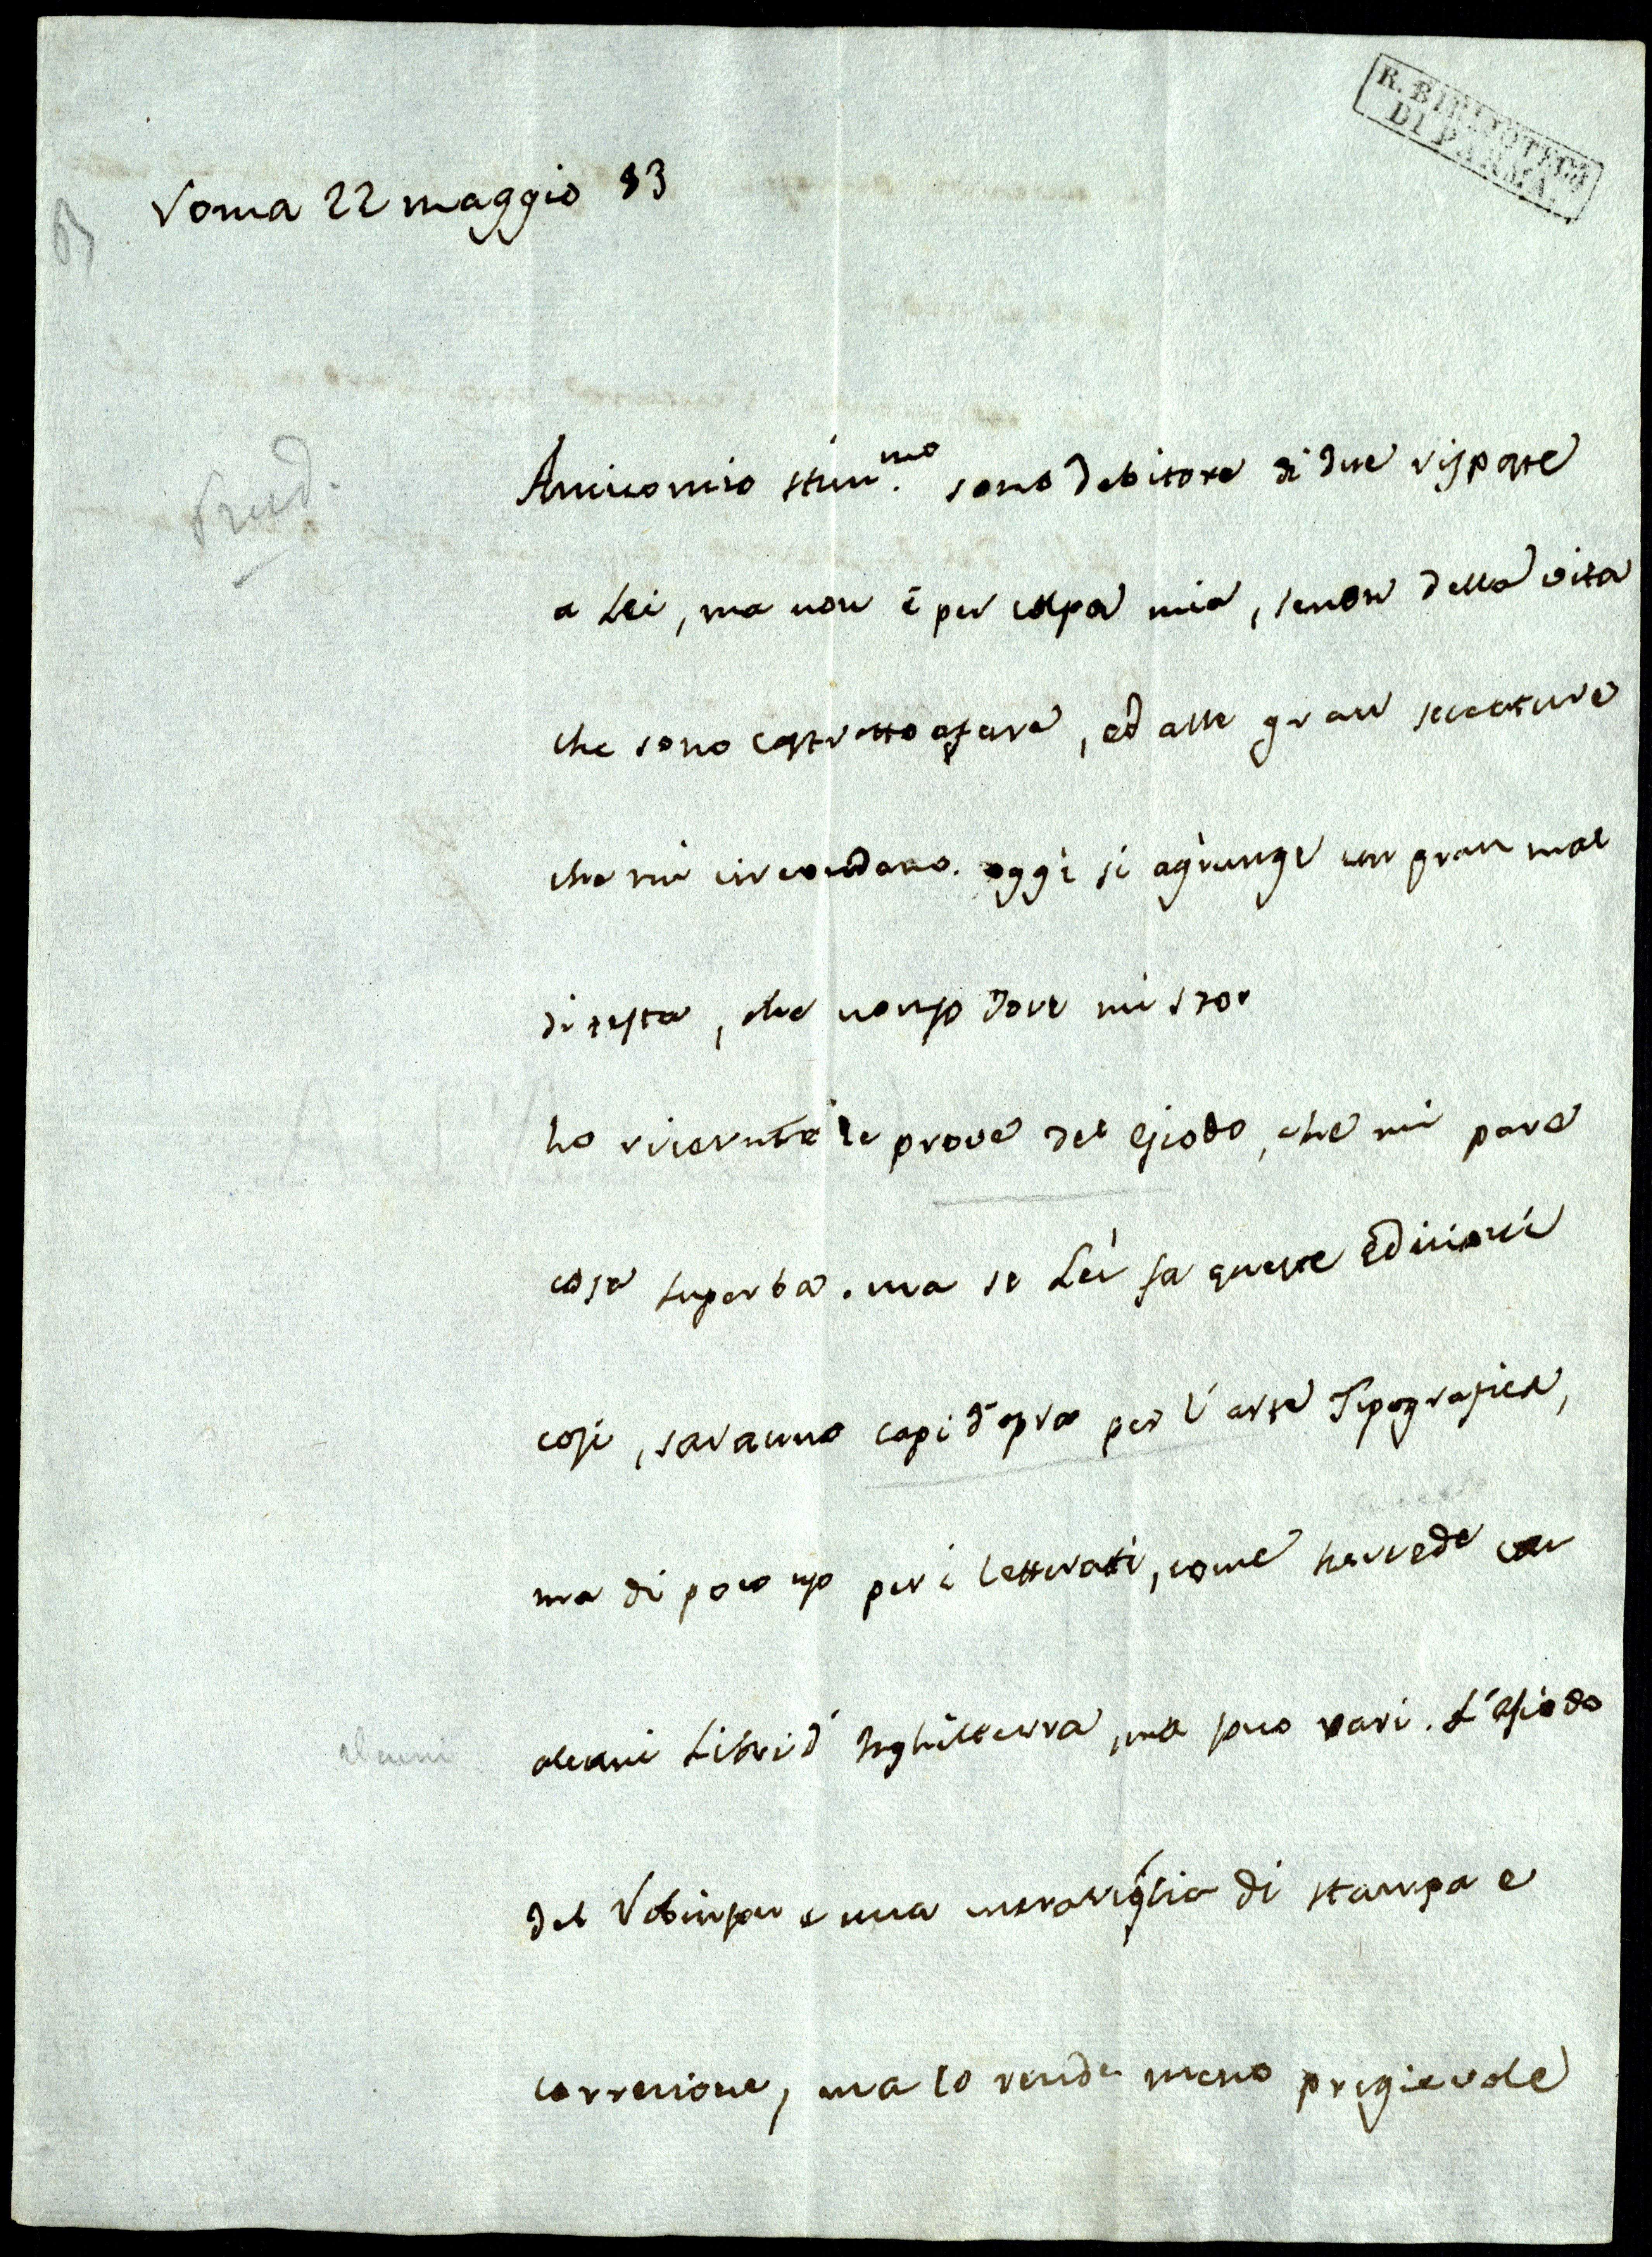 R. BIBLIOTECA
DI PARMA.
Roma 22 maggio 83
Pred.
Amico mio stim.mo sono debitore di due risposte
a Lei, ma non è per colpa mia, senon della vita
che sono costretto afare, ed alle gran seccature
che mi circondano. oggi si agiunge un gran mal
di testa, che nonso dove mi sto
ho ricevute le prove del Esiodo, che mi pare
cosa superba. ma se Lei fa queste Edizioni
cosi, saranno capi d'opra per l'arte Tipografica,
ma di poco uso per i letterati, come succede con
alcuni Libri d'Inghilterra, ma suo rari. L'Esiodo
alcuni
del Robinson e una meraviglia di stampa e
correzione, ma lo rende meno pregievole